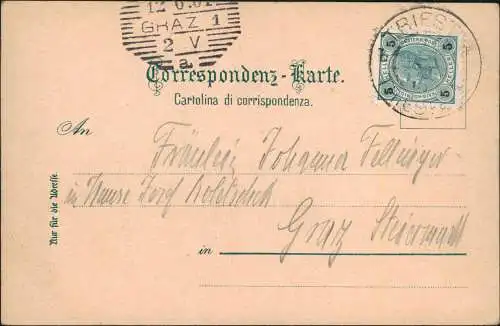 12 6.01
GRAZ 1
2 V
a
TRIEST
5 5
5 5
Correspondenz-Karte.
Cartolina di corrispondenza.
An
Fräulein Johanna Fellinger
in Hause Josef
Graz Steiermark
in
Nur für die Adresse